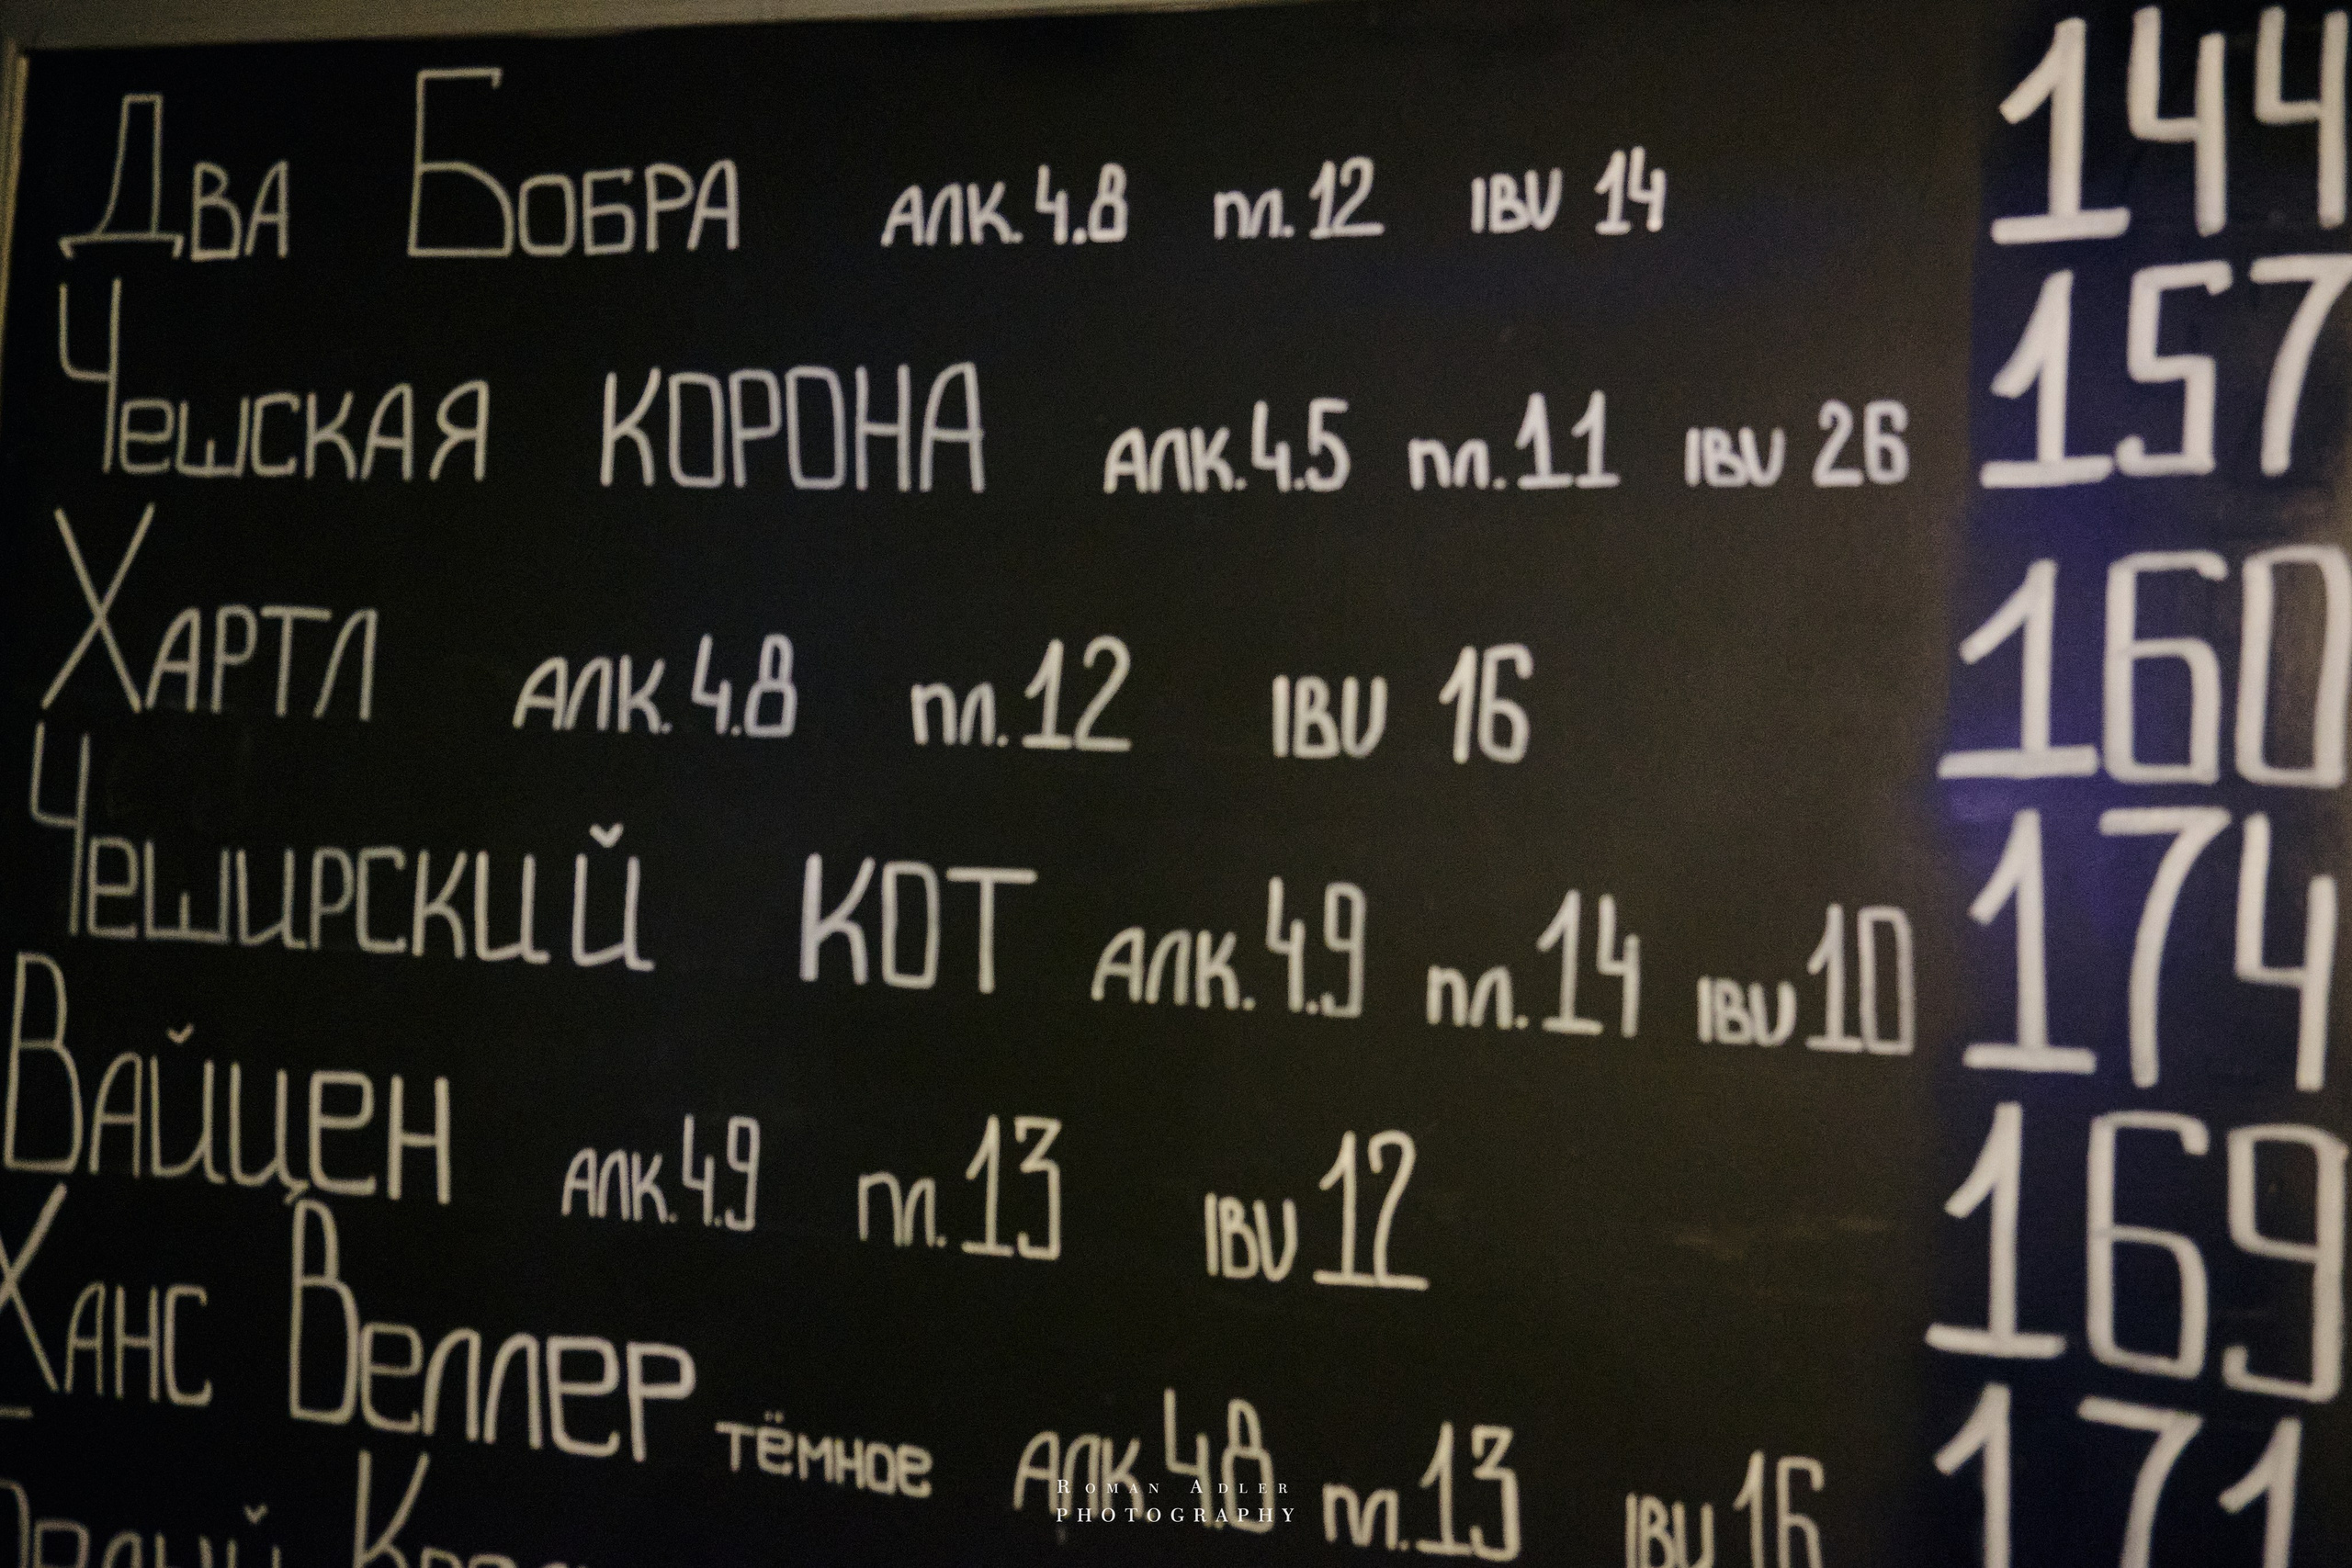 Два Бобра алк. 4.8 пл. 12 IBU 14 144
Чешская корона алк. 4.5 пл. 11 IBU 26 157
Хартл алк. 4.8 пл. 12 IBU 16 160
Чеширский кот алк. 4.9 пл. 14 IBU 10 174
Вайцен алк. 4.9 пл. 13 IBU 12 169
Ханс Веллер тёмное алк 4.8 пл. 13 IBU 16 171
Roman Adler
PHOTOGRAPHY